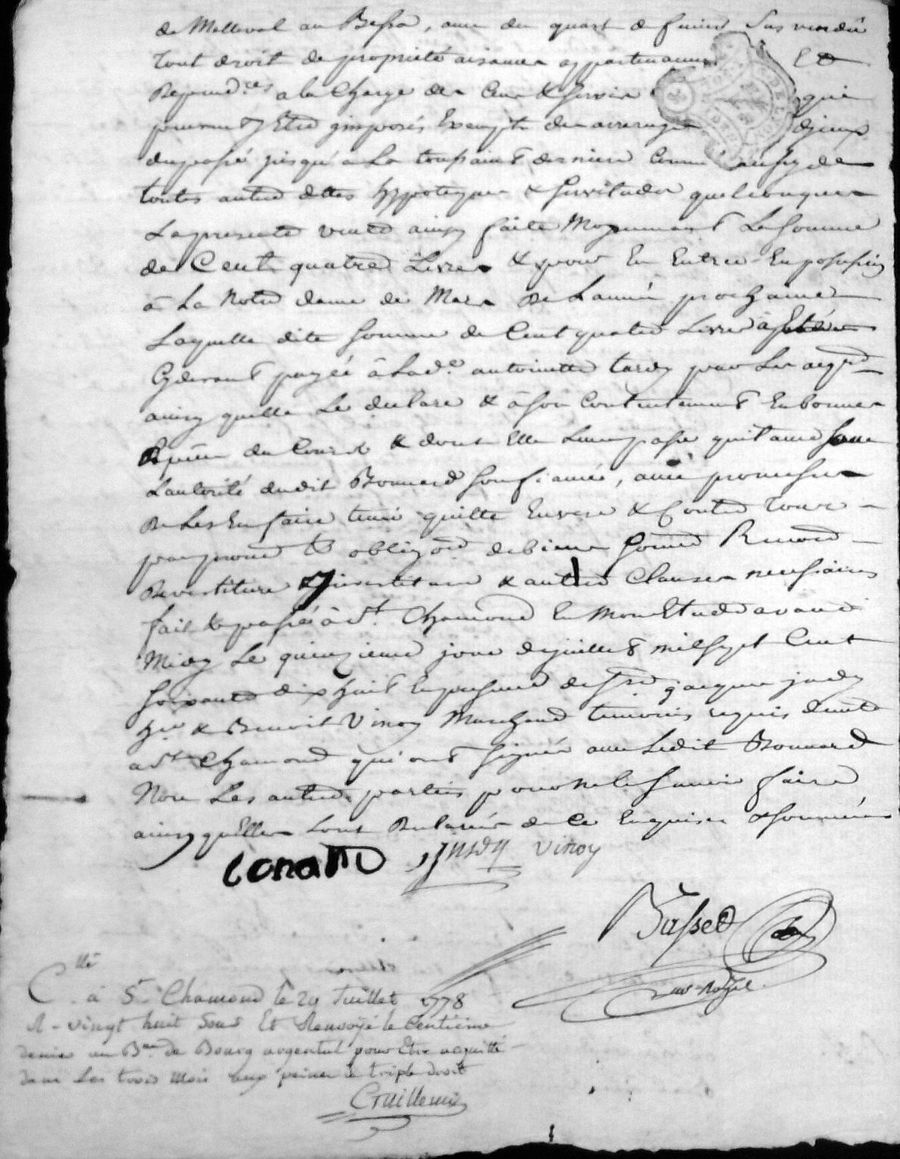 de Melleval au Bessa, avec du quart de fruits sus vendu
tout droit de propriété aisances appartenances Et
Dependces a la charge des Cens & servis qui
pourront y Etre imposés Exempts des arrerages
du passé jusqu'a La toussaint derniere Comme aussy de
toutes autres dettes hypoteques & servitudes quelconques
La presente vente ainsy faite Moyennant La somme
de Cent quatre Livres & pour En Entrer En possession
à La Notre dame de Mars De L'année prochaine
Laquelle dite somme de Cent quatre Livres à Eté
Cydevant payée à Lade antoinette tardy par Les acqrs
ainsy quelle Le declare & à son Contentement En bonnes
Especes du Cours & dont Elle Luy passe quittance sous
L'autorité dudit Bonnard son fiancé, avec promesse
De Les En faire tenir quitte Envers & Contre tous
par promes obligaon de biens soumis Renon
Revestiture Investiture & autres Clauses necessaires
fait & passé à St. Chamond En Mon Etude avant
Midy Le quinzieme jour de juillet mil sept Cent
soixante dix huit En presence de jacques jardy
& Benoit Vinoy Marchand temoins requis
a St Chamond qui ont signé avec Ledit Bonnard
Non Les autres parties pour ne le sçavoir faire
ainsy quelles L'ont Declaré de Ce Enquises & sommées
conall Vinoy
Basset
no. Royal.
Cllé
à St Chamond le 29 Juillet 1778
R. vingt huit sous Et Renvoyé le Centieme
denier au Bau de Bourg argental pour Etre acquitté
dans Les trois mois aux peines de triple droit
Guillemin